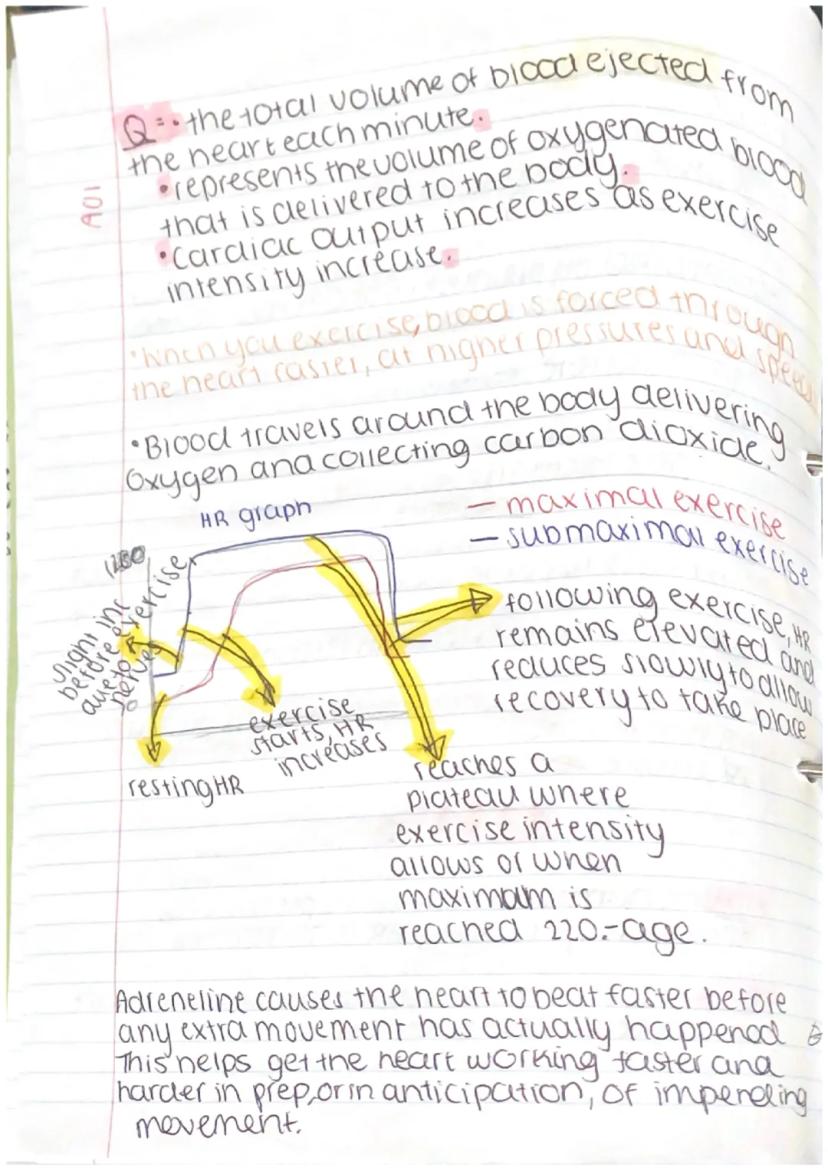 Q=•the total volume of blood ejected from
the heart each minute.
•represents the volume of oxygenated blood
that is delivered to the body.
A01
•Cardiac output increases as exercise
intensity increase.
•When you exercise, blood is forced through
the heart faster, at higher pressures and speeds
•Blood travels around the body delivering
Oxygen and collecting carbon dioxide.
HR graph
— maximal exercise
— submaximal exercise
slight inc
before exercise
due to
nerves
0
following exercise, HR
remains elevated and
reduces slowly to allow
recovery to take place
exercise
starts, HR
increases
resting HR
reaches a
plateau where
exercise intensity
allows or when
maximum is
reached 220.-age.
Adreneline causes the heart to beat faster before
any extra movement has actually happened
This helps get the heart working faster and
harder in prep, or in anticipation, of impending
movement.